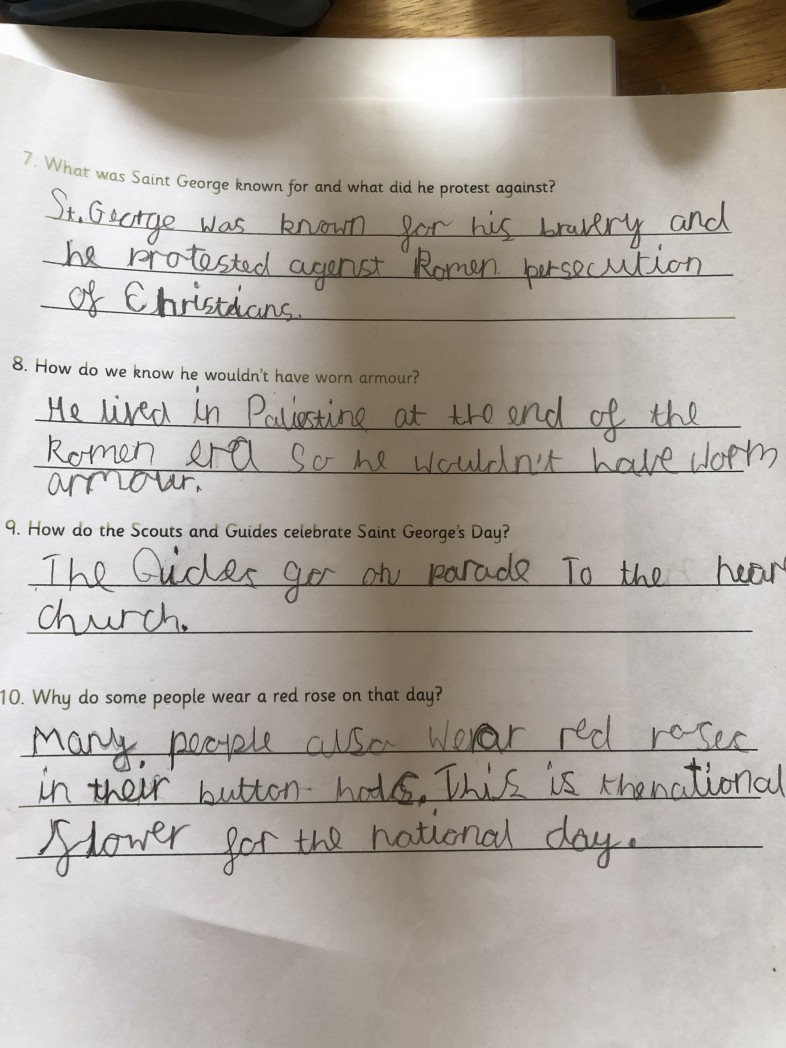 7. What was Saint George known for and what did he protest against?
St. George was known for his bravery and
he protested agenst Romen persecution
of Christians.
8. How do we know he wouldn't have worn armour?
He lived in Paliestine at the end of the
Romen era so he wouldn't have worn
armour.
9. How do the Scouts and Guides celebrate Saint George's Day?
The Guides go on parade To the near
church.
10. Why do some people wear a red rose on that day?
Many people also wear red roses
in their button-holes. This is the national
flower for the national day.